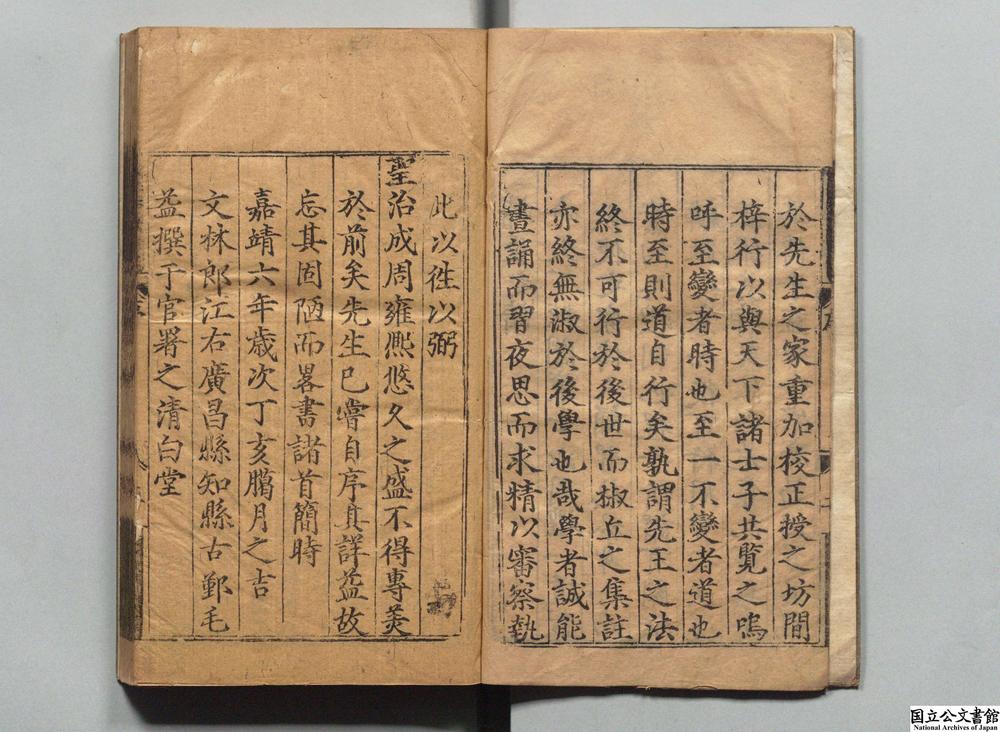 於先生之家重加校正授之坊間
梓行以與天下諸士子共覽之嗚
呼至變者時也至一不變者道也
時至則道自行矣孰謂先王之法
終不可行於後世而椒丘之集註
亦終無淑於後學也哉學者誠能
晝誦而習夜思而求精以審察執
此以徃以弼
聖治成周雍熙悠久之盛不得專羙
於前矣先生已嘗自序其詳益故
忘其固陋而畧書諸首簡時
嘉靖六年歲次丁亥臈月之吉
文林郎江右廣昌縣知縣古鄞毛
益撰于官署之清白堂
国立公文書館
National Archives of Japan